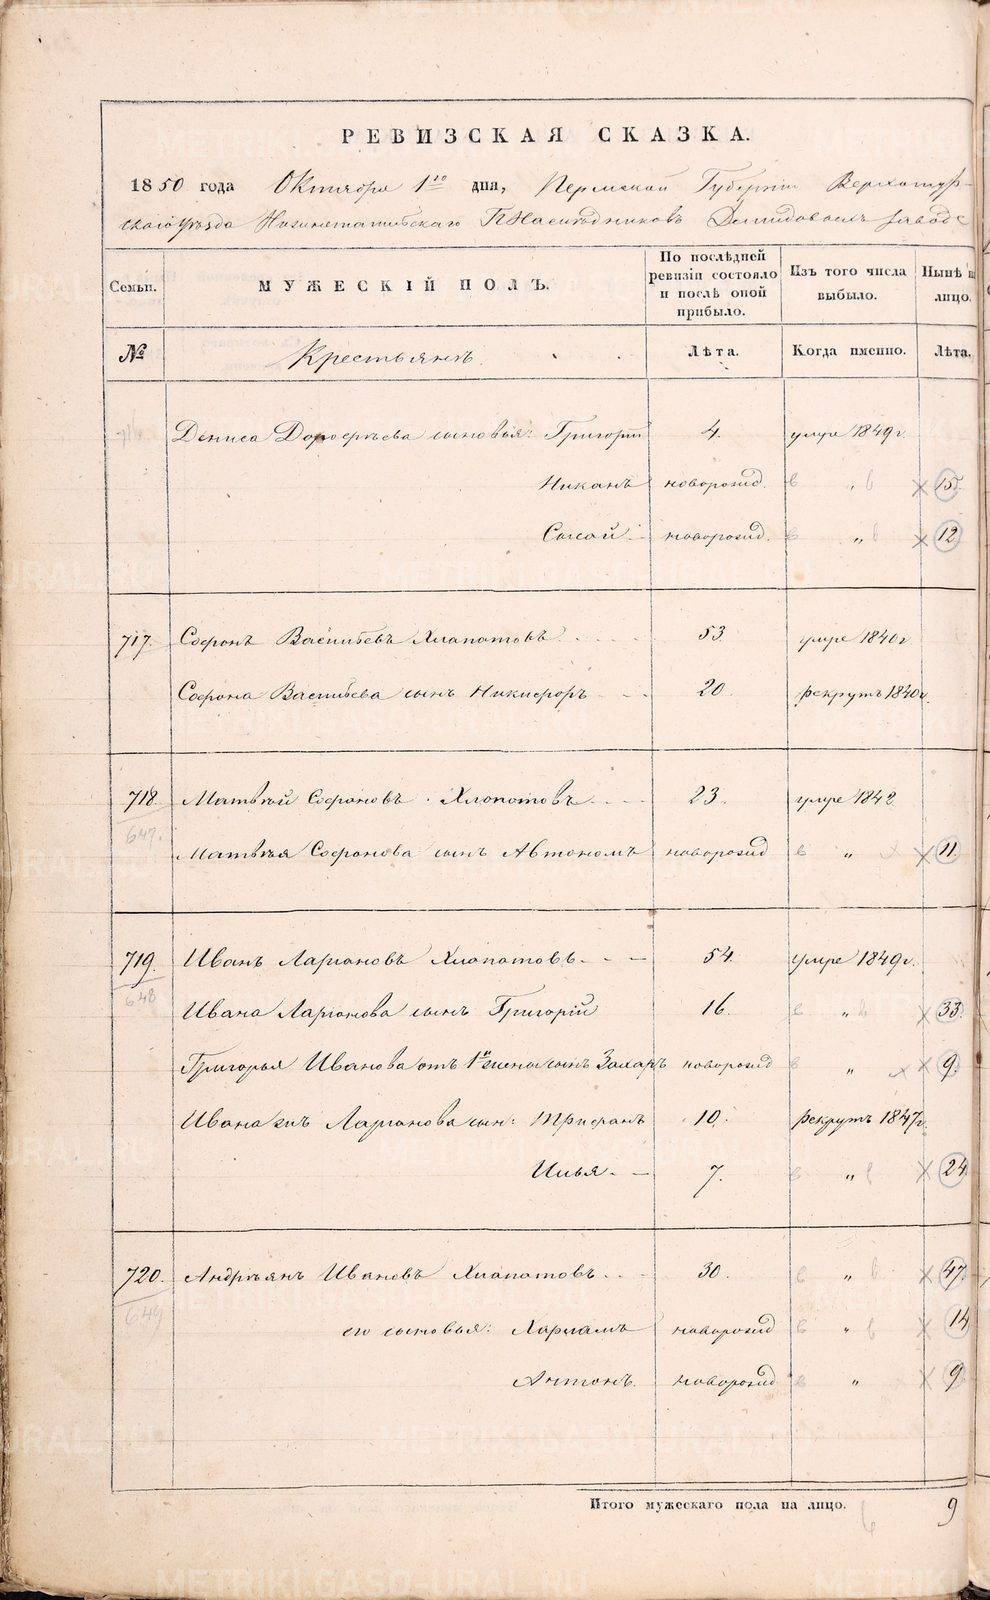 РЕВИЗСКАЯ СКАЗКА.
1850 года Октября 1го дня, Пермской Губернiи Верхотур-
скаго уѣзда Нижнетагильскаго Г. Наслѣдниковъ Демидовыхъ завода
Семьи. МУЖЕСКIЙ ПОЛЪ. По послѣдней ревизiи состояло и послѣ оной прибыло. Изъ того числа выбыло. Нынѣ на лицо.
№ Крестьянъ. Лѣта. Когда именно. Лѣта.
Дениса Дорофѣева сыновья: Григорiй 4. умре 1849 г.
Никанъ новорожд. " 15.
Сысой новорожд. " 12
717. Софронъ Васильевъ Хлопотовъ 53 умре 1840 г
Софрона Васильева сынъ Никифоръ 20. рекрутъ 1840 г.
718. Матвѣй Софроновъ Хлопотовъ 23. умре 1842
647.
Матвѣя Софронова сынъ Автономъ новорожд " 11.
719. Иванъ Ларiоновъ Хлопотовъ 54. умре 1849 г.
648
Ивана Ларiонова сынъ Григорiй 16. " 33.
Григорья Иванова отъ 1й жены сынъ Захаръ новорожд " 9.
Ивана Ларiонова сын: Трифанъ 10. рекрутъ 1847 г.
Илья 7. " 24
720. Андрѣянъ Ивановъ Хлопотовъ 30. " 47.
649
его сыновья: Лариамъ новорожд " 14
Антонъ. новорожд " 9
Итого мужескаго пола на лицо. 9
METRIKI.GASO-URAL.RU